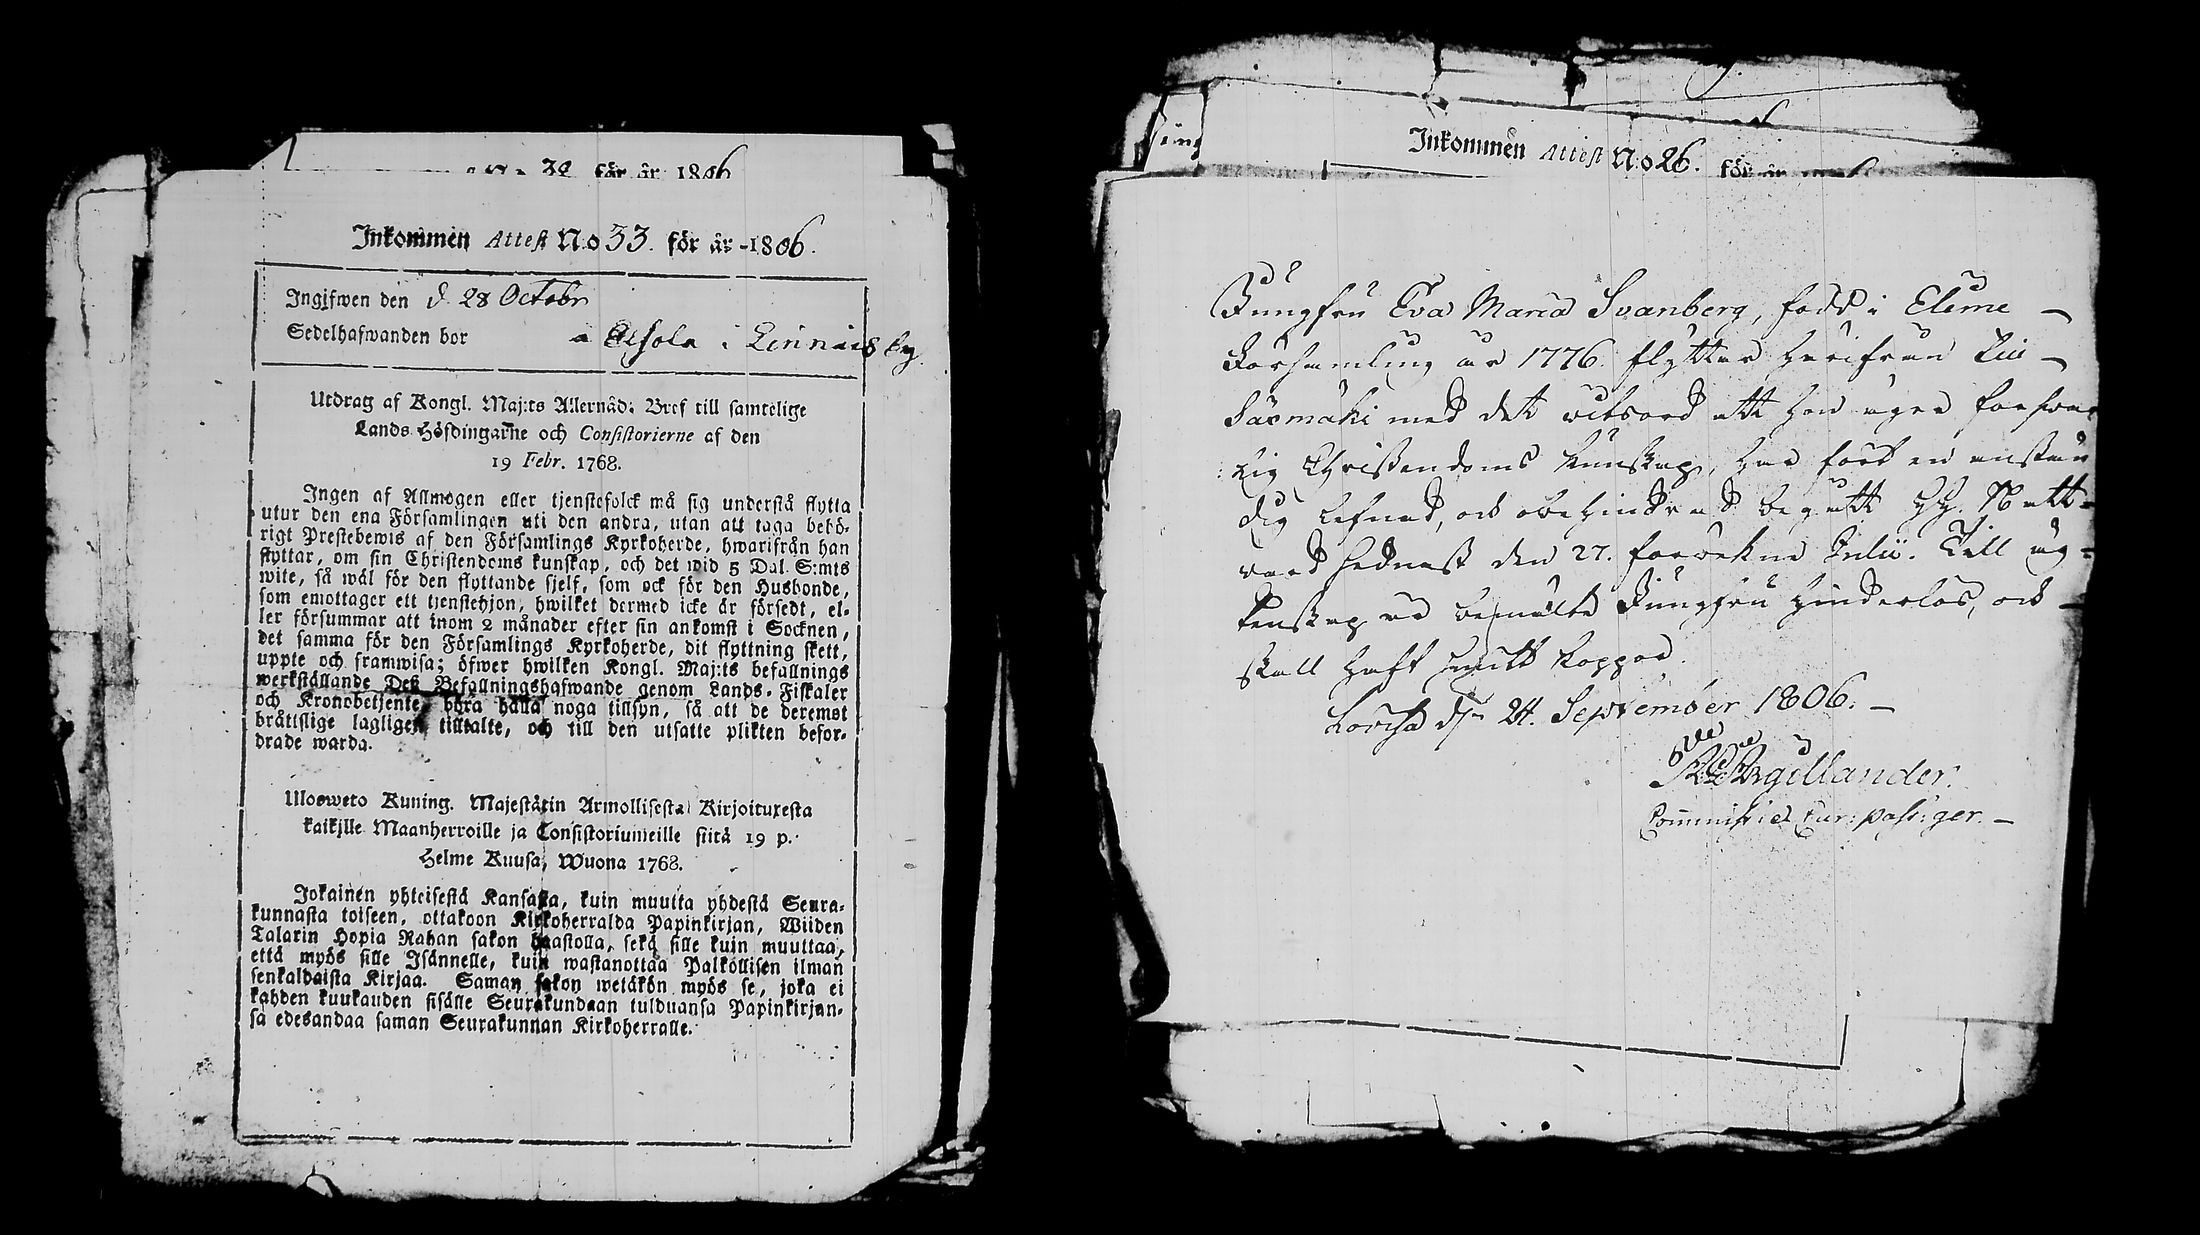 No 32 för år 1806
Inkommen Attest N:o 33. för år 1806.
Ingifwen den d. 28 Octobr
Sedelhafwanden bor a Alsola i Linnais by.
Utdrag af Kongl. Maj:ts Allernåd: Bref till samtelige
Lands Höfdingarne och Consistorierne af den
19 Febr. 1768.
Ingen af Allmogen eller tjenstefolck må sig understå flytta
utur den ena Församlingen uti den andra, utan att taga behö-
rigt Prestebewis af den Församlings Kyrkoherde, hwarifrån han
flyttar, om sin Christendoms kunskap, och det wid 5 Dal. S:mts
wite, så wäl för den flyttande sjelf, som ock för den Husbonde,
som emottager ett tjenstehjon, hwilket dermed icke är försedt, el-
ler försummar att inom 2 månader efter sin ankomst i Socknen,
det samma för den Församlings Kyrkoherde, dit flyttning skett,
uppte och framwisa; öfwer hwilken Kongl. Maj:ts befallnings
werkställande Deß Befallningshafwande genom Lands-Fiskaler
och Kronobetjente, böra hålla noga tillsyn, så att de deremot
bråttslige lagligen tilltalte, och till den utsatte plikten befor-
drade warda.
Ulosweto Kuning. Majestätin Armollisesta Kirjoituxesta
kaikille Maanherroille ja Consistoriumeille siitä 19 p.
Helme Kuusa, Wuona 1768.
Jokainen yhteisestä Kansasta, kuin muutta yhdestä Seura-
kunnasta toiseen, ottakoon Kirkoherralda Papinkirjan, Wiiden
Talarin Hopia Rahan sakon haastolla, sekä sille kuin muuttaa,
että myös sille Isännelle, kuin wastanottaa Palkollisen ilman
senkaldaista Kirjaa. Saman sakon wetäkön myös se, joka ei
kahden kuukauden sisälle Seurakundaan tulduansa Papinkirjan-
sa edesandaa saman Seurakunnan Kirkoherralle.
Inkommen Attest N:o 26. för år
Jungfru Eva Maria Svanberg, född i Elime
Församling år 1776. flyttar härifrån till
Sääsmäki med dett witsord att hon äger förswar
lig Christendoms kunskap, har fört en anstän
dig lefnad, och obehindrad begått Hg. Natt-
vard sednast den 27. förwekne Julii. Till äg-
tenskap är bemälte Jungfru hinderlös, och
skall haft koppor.
Lovisa d. 24. September 1806.
Argillander.